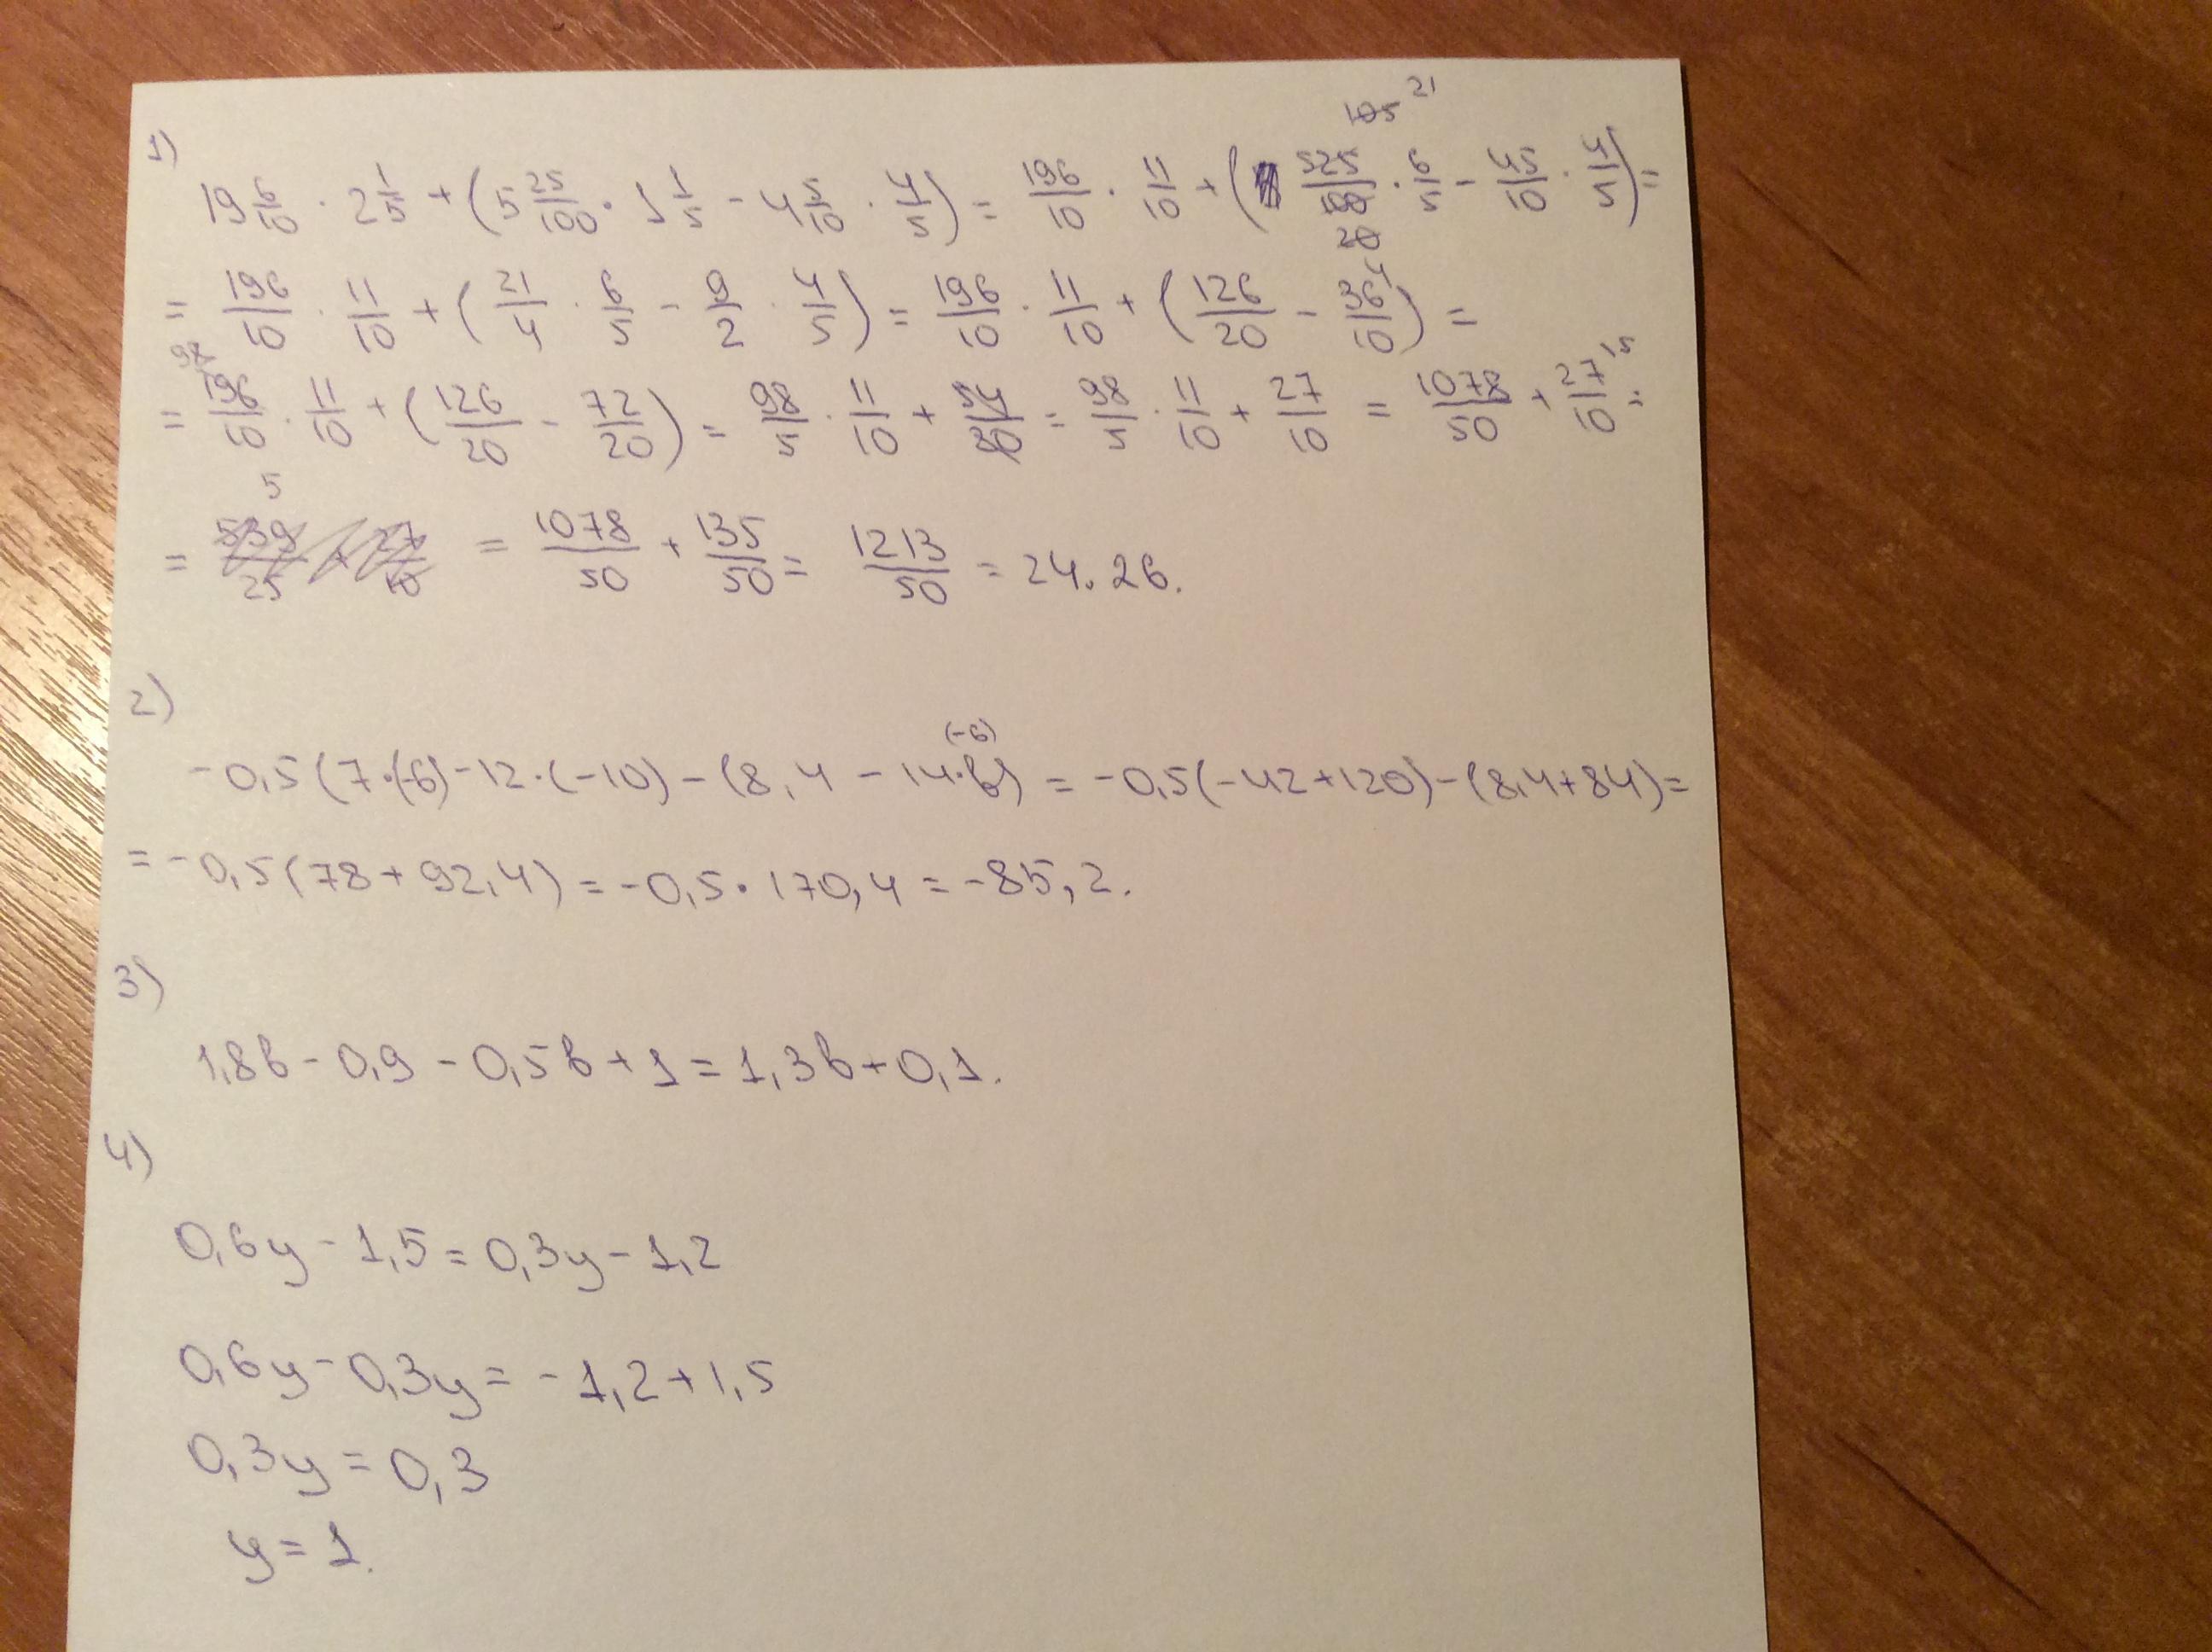 1)
19 6/10 · 2 1/5 + (5 25/100 · 1 1/5 - 4 5/10 · 4/5) = 196/10 · 11/10 + (525/100 · 6/5 - 45/10 · 4/5) =
105 21
20 4
= 196/10 · 11/10 + (21/4 · 6/5 - 9/2 · 4/5) = 196/10 · 11/10 + (126/20 - 36/10) =
98
= 196/10 · 11/10 + (126/20 - 72/20) = 98/5 · 11/10 + 54/20 = 98/5 · 11/10 + 27/10 = 1078/50 + 27/10 =
5
= 539/25 + 27/10 = 1078/50 + 135/50 = 1213/50 = 24.26.
2)
-0,5(7·(-6)-12·(-10)-(8,4 - 14·6) = -0,5(-42+120)-(8,4+84)=
(-6)
= -0,5(78+92,4) = -0,5·170,4 = -85,2.
3)
1,8b - 0,9 - 0,5b + 1 = 1,3b + 0,1.
4)
0,6y - 1,5 = 0,3y - 1,2
0,6y - 0,3y = -1,2 + 1,5
0,3y = 0,3
y = 1.